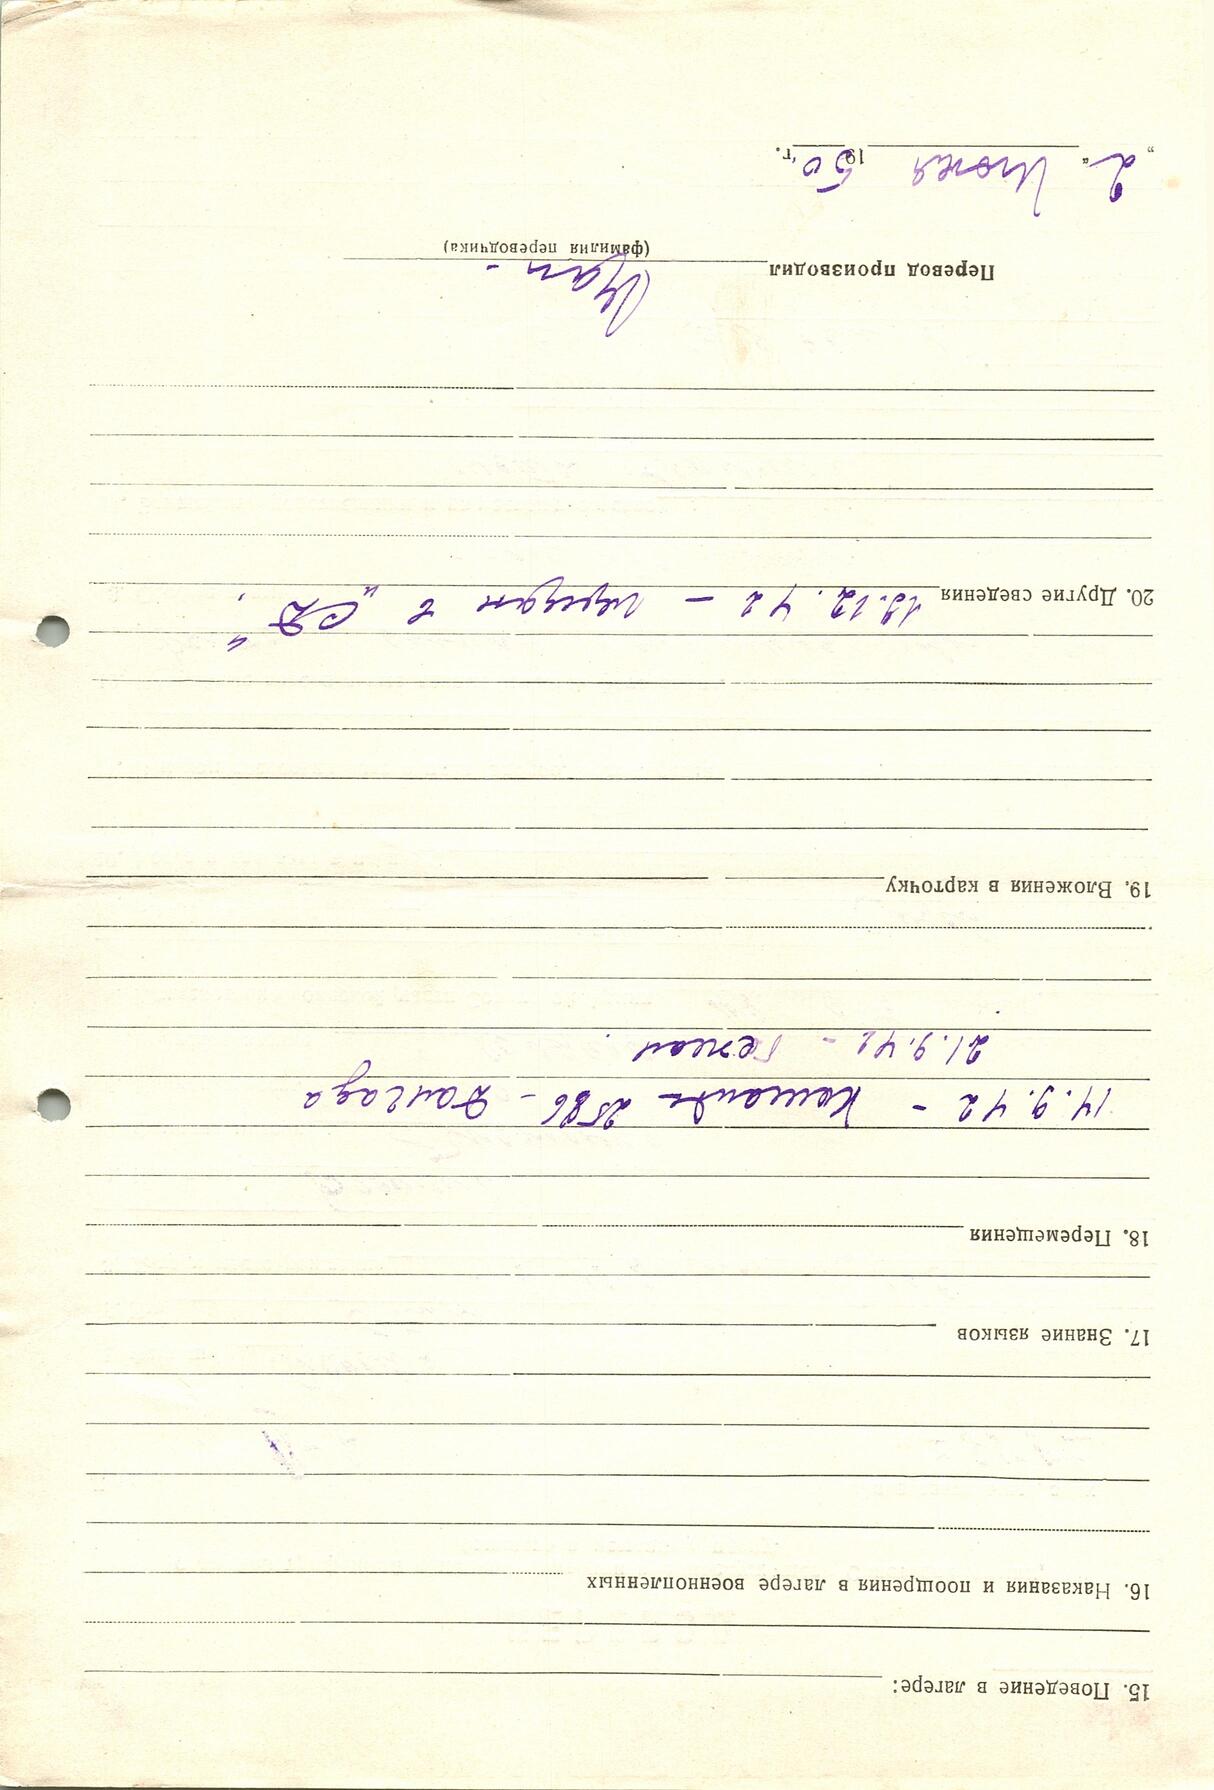 15. Поведение в лагере:
16. Наказания и поощрения в лагере военнопленных
17. Знание языков
18. Перемещения
14.9.42 – Команда 2586 –
21.9.42 – Бежал.
19. Вложения в карточку
20. Другие сведения 19.12.42 – передан в „СД“.
Перевод производил
(фамилия переводчика)
„2“ Июня 1950 г.